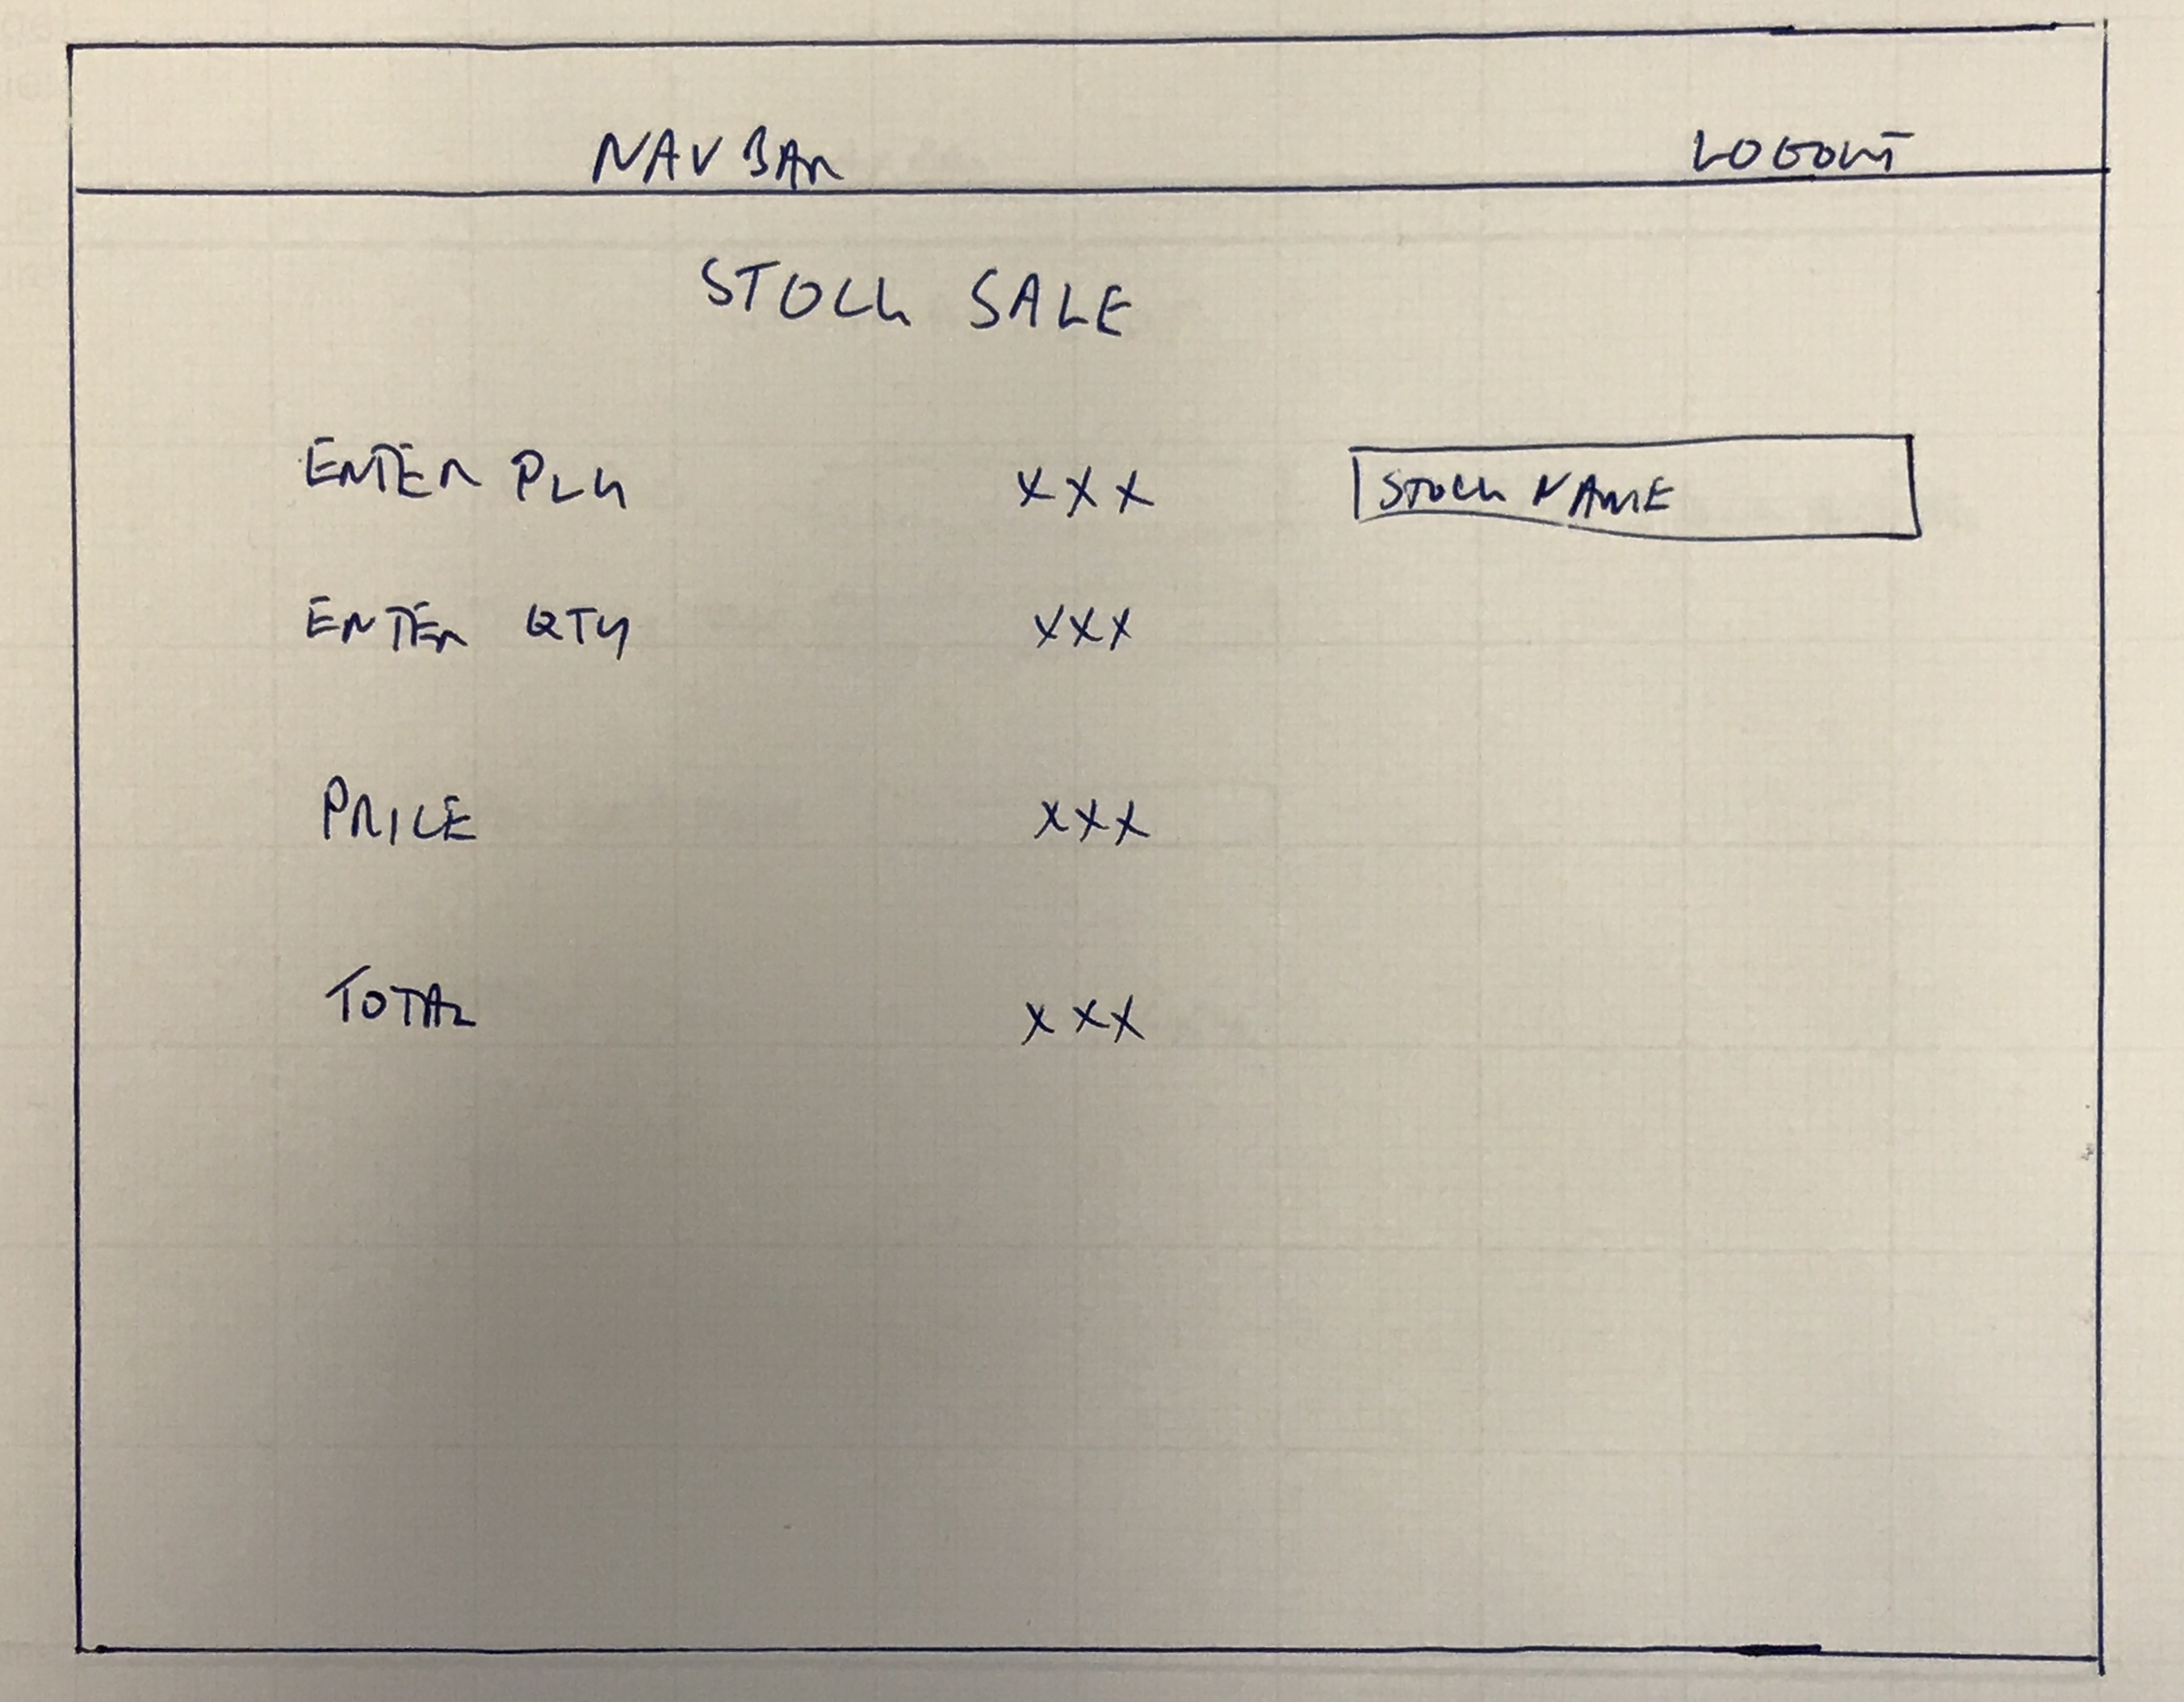 NAV BAR LOGOUT
STOCK SALE
ENTER PLU XXX STOCK NAME
ENTER QTY XXX
PRICE XXX
TOTAL XXX